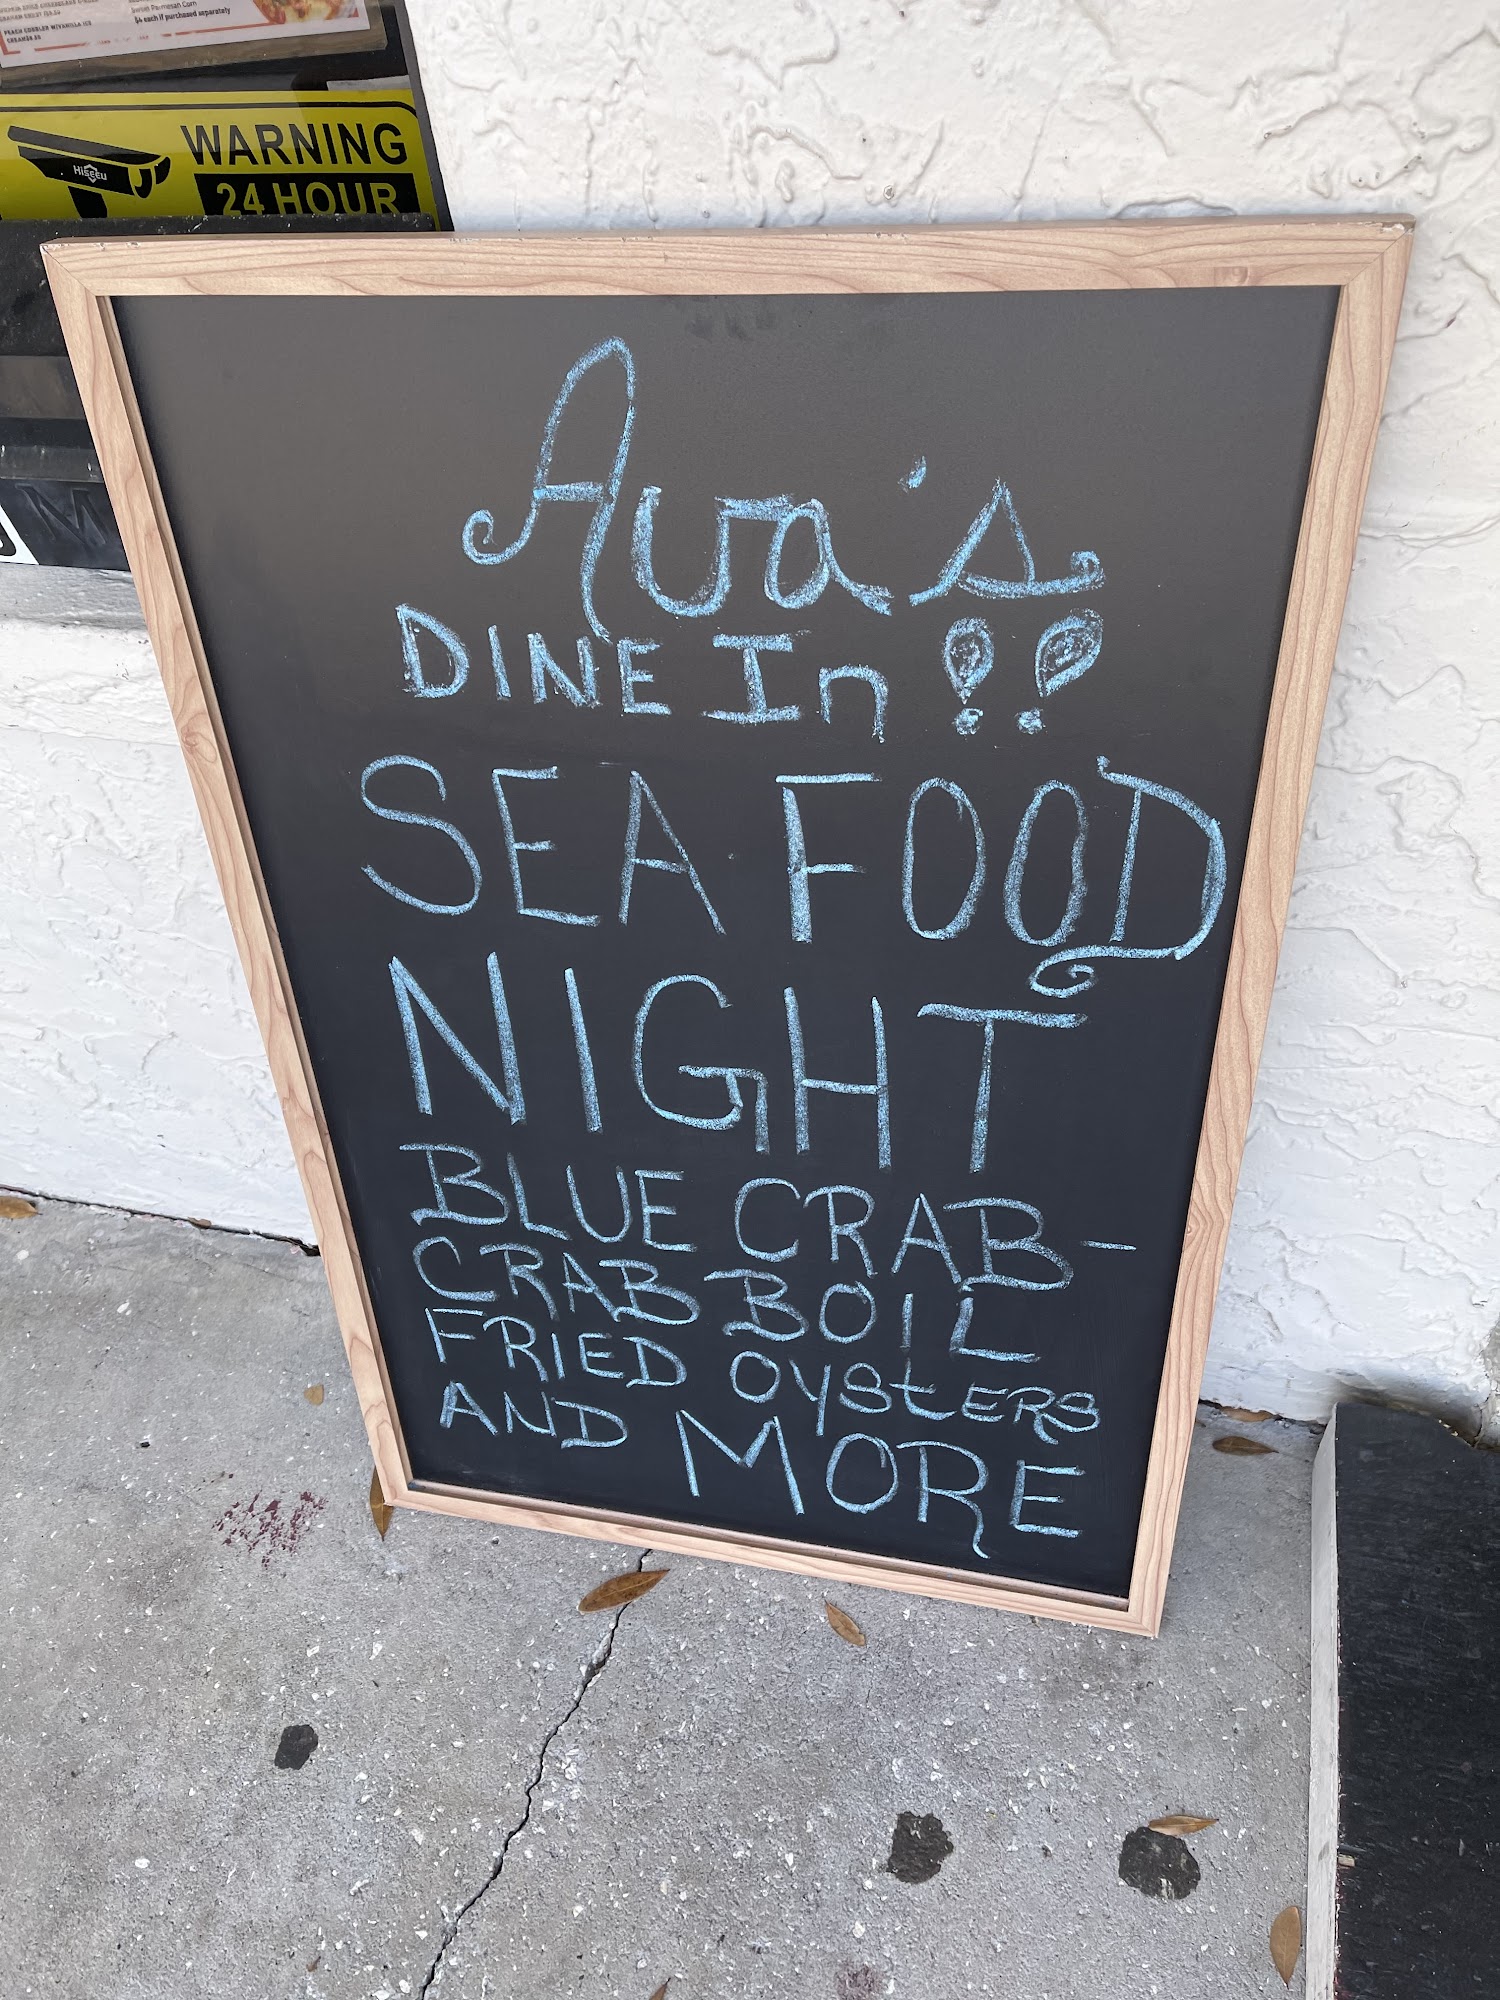 Sweet Parmesan Corn
$4 each if purchased separately
PEACH COBBLER W/VANILLA ICE
CREAM$8.25
WARNING
24 HOUR
Hiseeu
Ava's
DINE In !!
SEA FOOD
NIGHT
BLUE CRAB-
CRAB BOIL
FRIED OYStERS
AND MORE